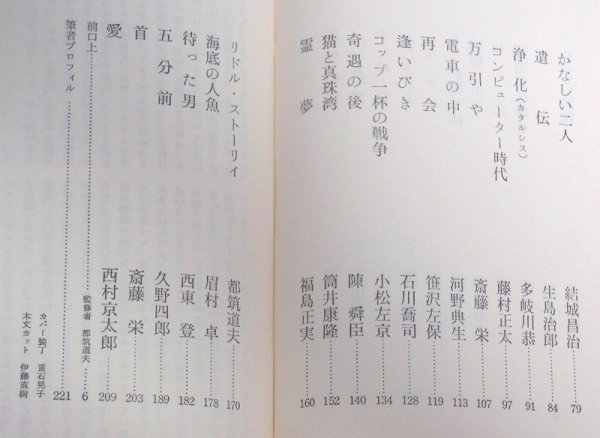 かなしい二人 結城昌治 79
遺伝 生島治郎 84
浄化（カタルシス） 多岐川恭 91
コンピューター時代 藤村正太 97
万引や 斎藤栄 107
電車の中 河野典生 113
再会 笹沢左保 119
逢いびき 石川喬司 128
コップ一杯の戦争 小松左京 134
奇遇の後 陳舜臣 140
猫と真珠湾 筒井康隆 152
霊夢 福島正実 160
リドル・ストーリイ 都筑道夫 170
海底の人魚 眉村卓 178
待った男 西東登 182
五分前 久野四郎 189
首 斎藤栄 203
愛 西村京太郎 209
前口上 監修者 都筑道夫 6
筆者プロフィル 221
カバー装丁 重石晃子
本文カット 伊藤直樹